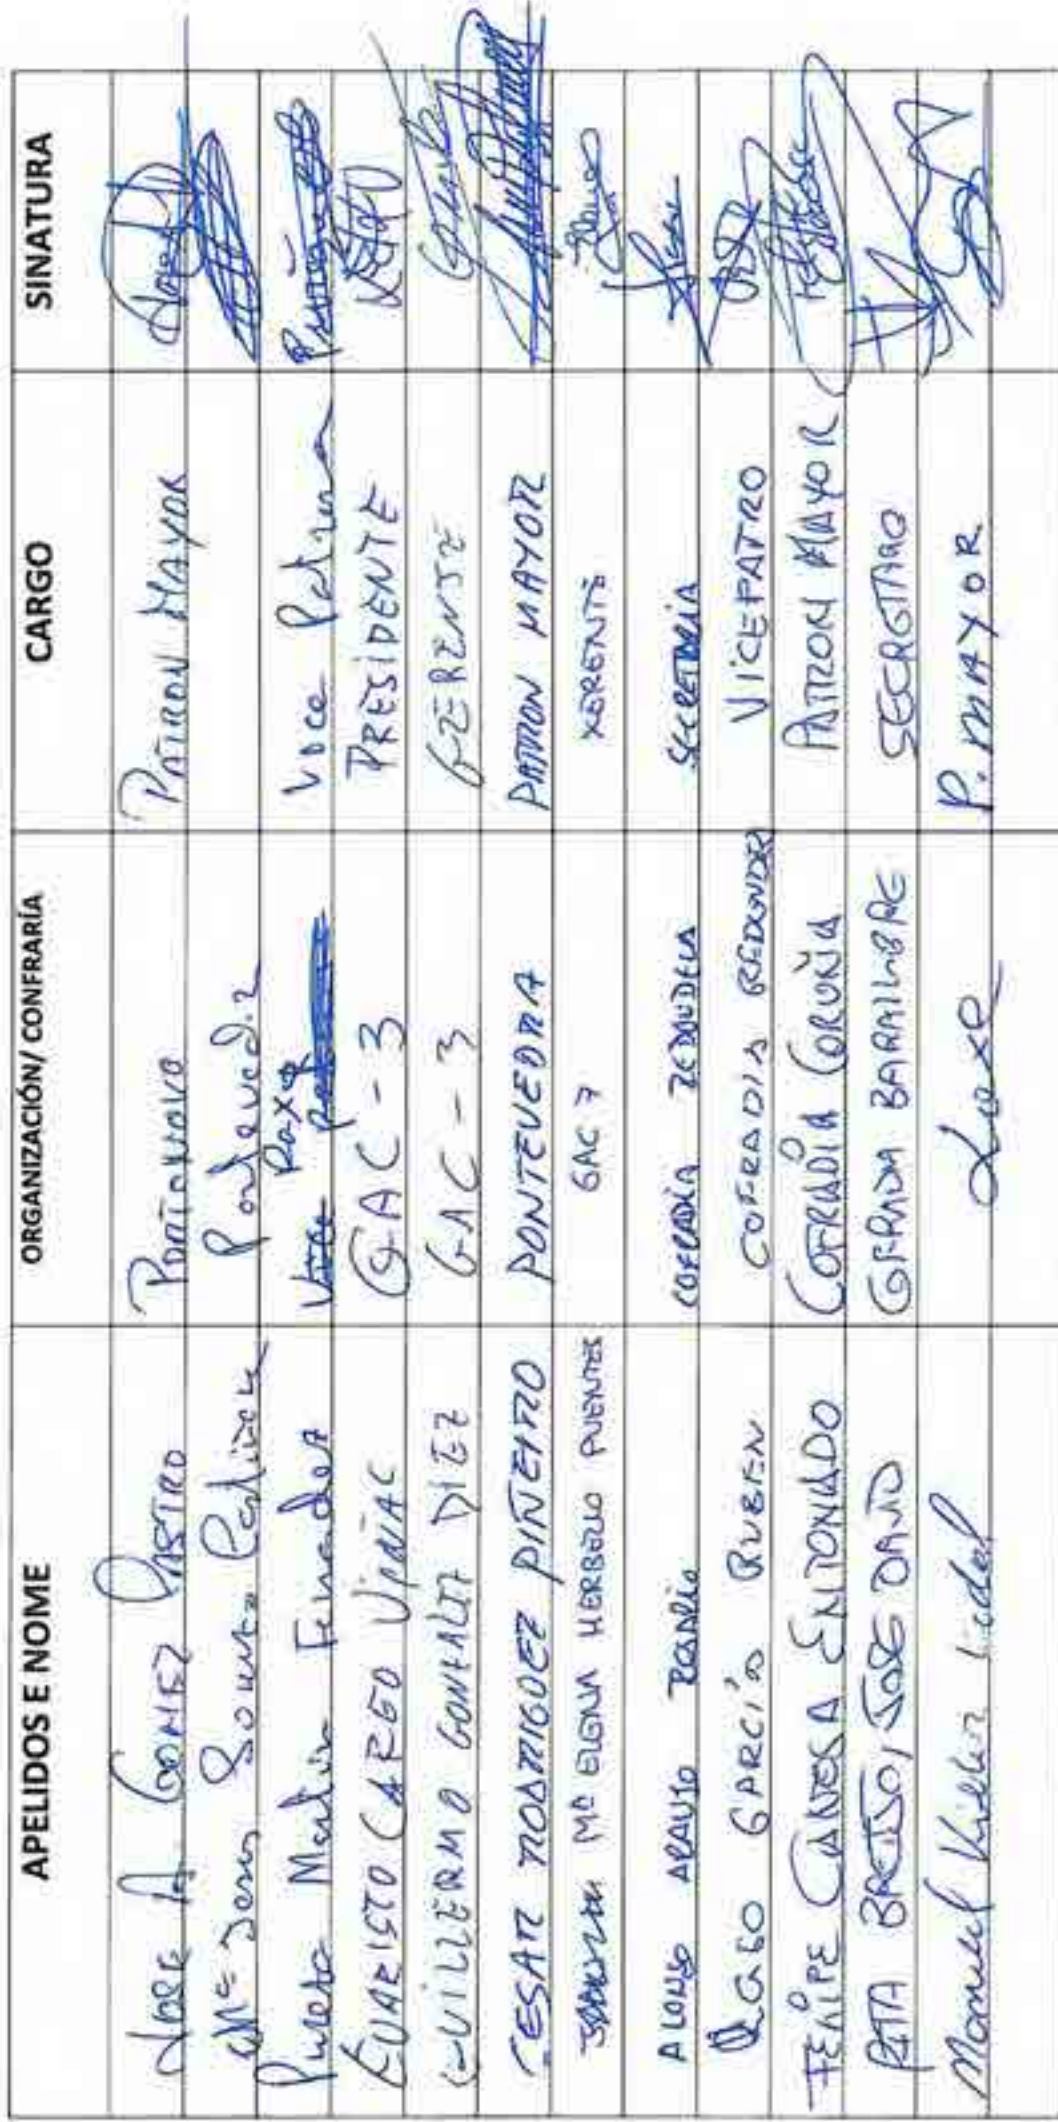 APELIDOS E NOME ORGANIZACIÓN/ CONFRARÍA CARGO SINATURA
JOSE A. GOMEZ CASTRO PORTONOVO PATRON MAYOR
Mª Jesus Pontevedra
Martin Fernandez Raxó Vice Patron
EVARISTO CAREO VIDAL GAC-3 PRESIDENTE
GUILLERMO GONZALEZ DIEZ GAC-3 GERENTE
CESAR RODRIGUEZ PIÑEIRO PONTEVEDRA PATRON MAYOR
Mª ELENA HERBELLO PUENTES GAC 7 XERENTE
ALONSO ARAUJO COFRADÍA REDONDELA SECRETARIA
GARCÍA RUBEN COFRADIA REDONDELA VICEPATRO
FELIPE CANOSA ENTONADO COFRADIA CORUÑA PATRON MAYOR
BREIJO, JOSE DAVID SECRETARIO
Manuel Laxe P. MAYOR